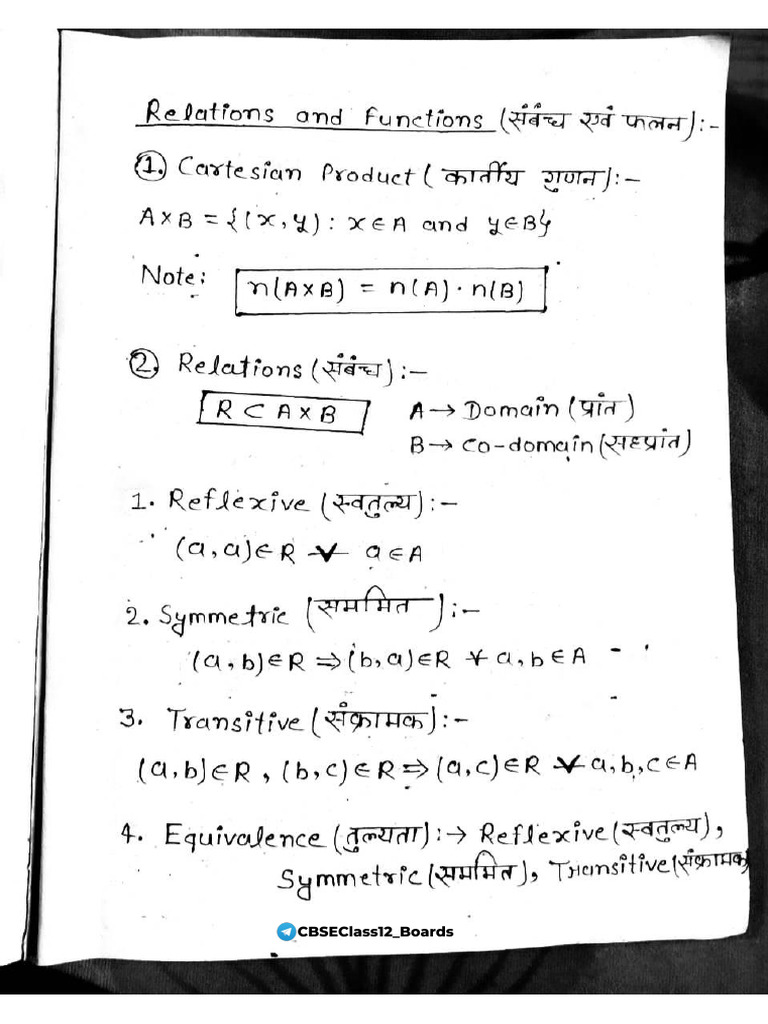 Relations and Functions (संबंध एवं फलन):-
①. Cartesian Product (कार्तीय गुणन):-
A×B = {(x,y): x∈A and y∈B}
Note: n(A×B) = n(A)·n(B)
②. Relations (संबंध):-
R ⊂ A×B A→ Domain (प्रांत)
B→ Co-domain (सहप्रांत)
1. Reflexive (स्वतुल्य):-
(a,a)∈R ∀ a∈A
2. Symmetric (सममित):-
(a,b)∈R ⇒(b,a)∈R ∀ a,b∈A
3. Transitive (संक्रामक):-
(a,b)∈R, (b,c)∈R ⇒(a,c)∈R ∀ a,b,c∈A
4. Equivalence (तुल्यता):→ Reflexive (स्वतुल्य),
Symmetric (सममित), Transitive (संक्रामक)
CBSEClass12_Boards